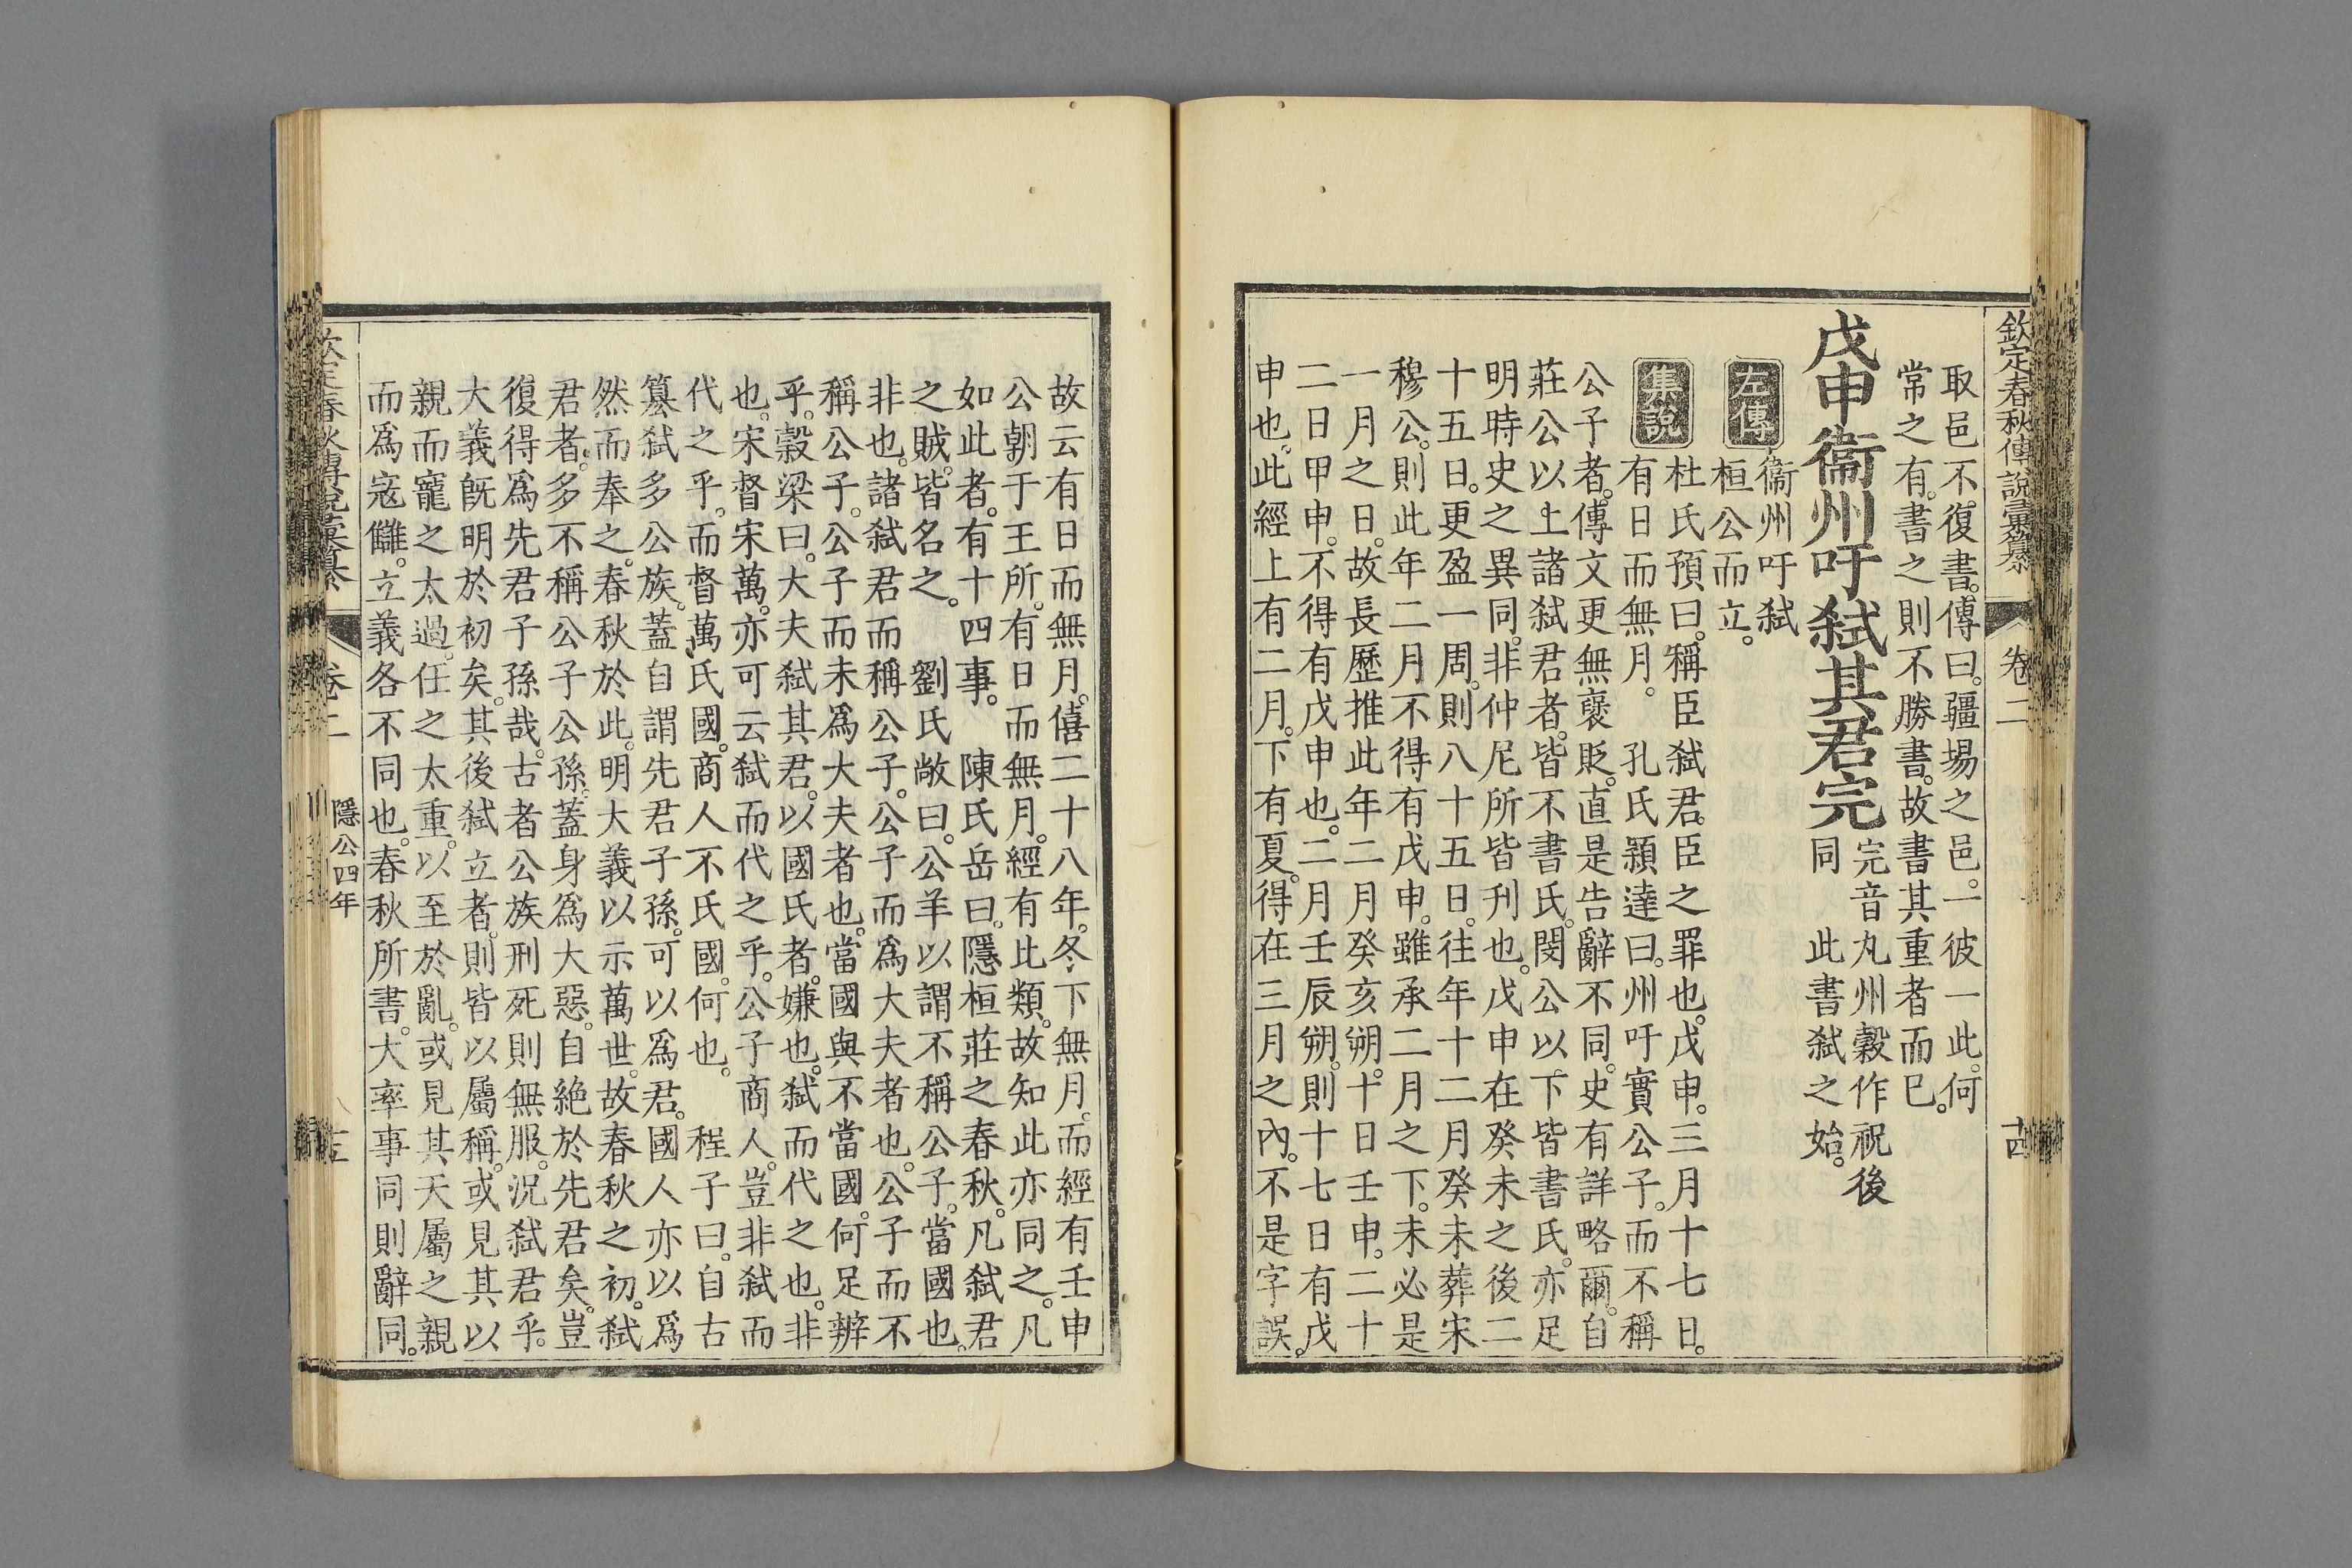 欽定春秋傳說彙纂 卷二 十四
取邑不復書傳曰疆場之邑一彼一此何
常之有書之則不勝書故書其重者而已
戊申衞州吁弒其君完
完音丸州穀作祝後
同 此書弒之始
左傳
衞州吁弒
桓公而立
集說
杜氏預曰稱臣弒君臣之罪也戊申三月十七日
有日而無月 孔氏穎達曰州吁實公子而不稱
公子者傳文更無襃貶直是告辭不同史有詳略爾自
莊公以上諸弒君者皆不書氏閔公以下皆書氏亦足
明時史之異同非仲尼所皆刊也戊申在癸未之後二
十五日更盈一周則八十五日往年十二月癸未葬宋
穆公則此年二月不得有戊申雖承二月之下未必是
一月之日故長歷推此年二月癸亥朔十日壬申二十
二日甲申不得有戊申也二月壬辰朔則十七日有戊
申也此經上有二月下有夏得在三月之內不是字誤
故云有日而無月僖二十八年冬下無月而經有壬申
公朝于王所有日而無月經有比類故知此亦同之凡
如此者有十四事 陳氏岳曰隱桓莊之春秋凡弒君
之賊皆名之 劉氏敞曰公羊以謂不稱公子當國也
非也諸弒君而稱公子公子而爲大夫者也公子而不
稱公子公子而未爲大夫者也當國與不當國何足辨
乎穀梁曰大夫弒其君以國氏者嫌也弒而代之也非
也宋督宋萬亦可云弒而代之乎公子商人豈非弒而
代之乎而督萬氏國商人不氏國何也 程子曰自古
簒弒多公族蓋自謂先君子孫可以爲君國人亦以爲
然而奉之春秋於此明大義以示萬世故春秋之初弒
君者多不稱公子公孫蓋身爲大惡自絕於先君矣豈
復得爲先君子孫哉古者公族刑死則無服況弒君乎
大義旣明於初矣其後弒立者則皆以屬稱或見其以
親而寵之太過任之太重以至於亂或見其天屬之親
而爲寇讎立義各不同也春秋所書大率事同則辭同
卷二 隱公四年